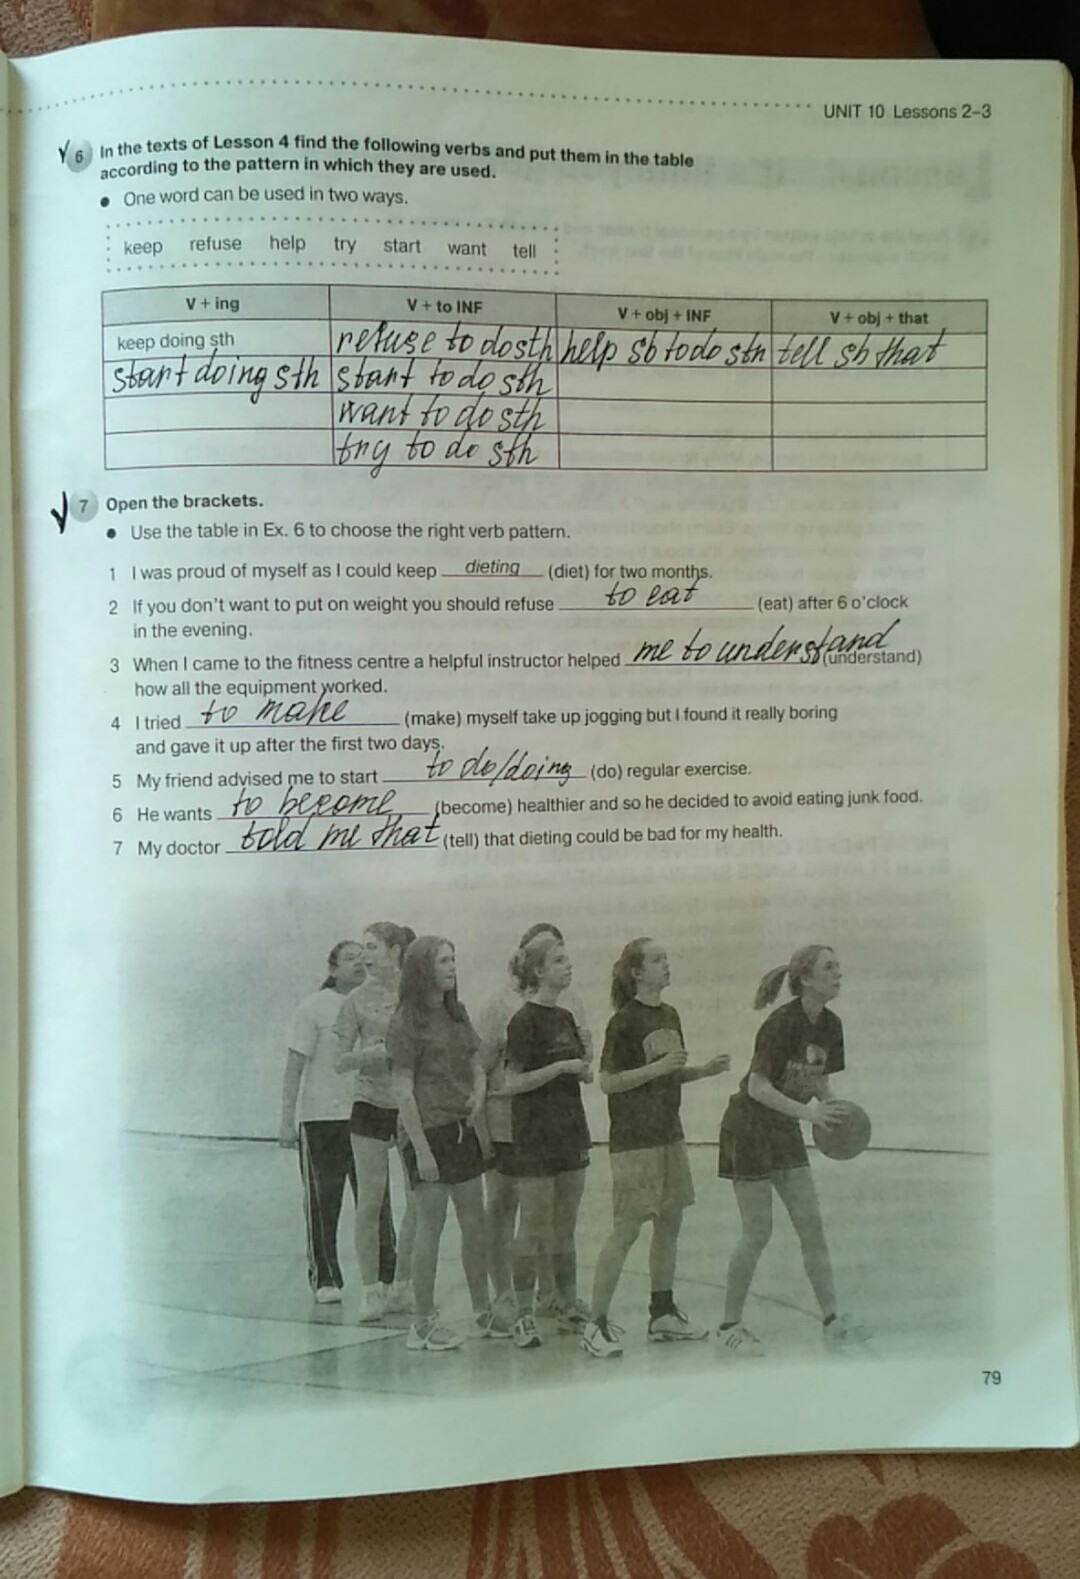 UNIT 10 Lessons 2–3
6 In the texts of Lesson 4 find the following verbs and put them in the table
according to the pattern in which they are used.
● One word can be used in two ways.
keep refuse help try start want tell
V + ing V + to INF V + obj + INF V + obj + that
keep doing sth refuse to do sth help sb to do sth tell sb that
start doing sth start to do sth
want to do sth
try to do sth
7 Open the brackets.
● Use the table in Ex. 6 to choose the right verb pattern.
1 I was proud of myself as I could keep dieting (diet) for two months.
2 If you don't want to put on weight you should refuse to eat (eat) after 6 o'clock
in the evening.
3 When I came to the fitness centre a helpful instructor helped me to understand (understand)
how all the equipment worked.
4 I tried to make (make) myself take up jogging but I found it really boring
and gave it up after the first two days.
5 My friend advised me to start to do/doing (do) regular exercise.
6 He wants to become (become) healthier and so he decided to avoid eating junk food.
7 My doctor told me that (tell) that dieting could be bad for my health.
79